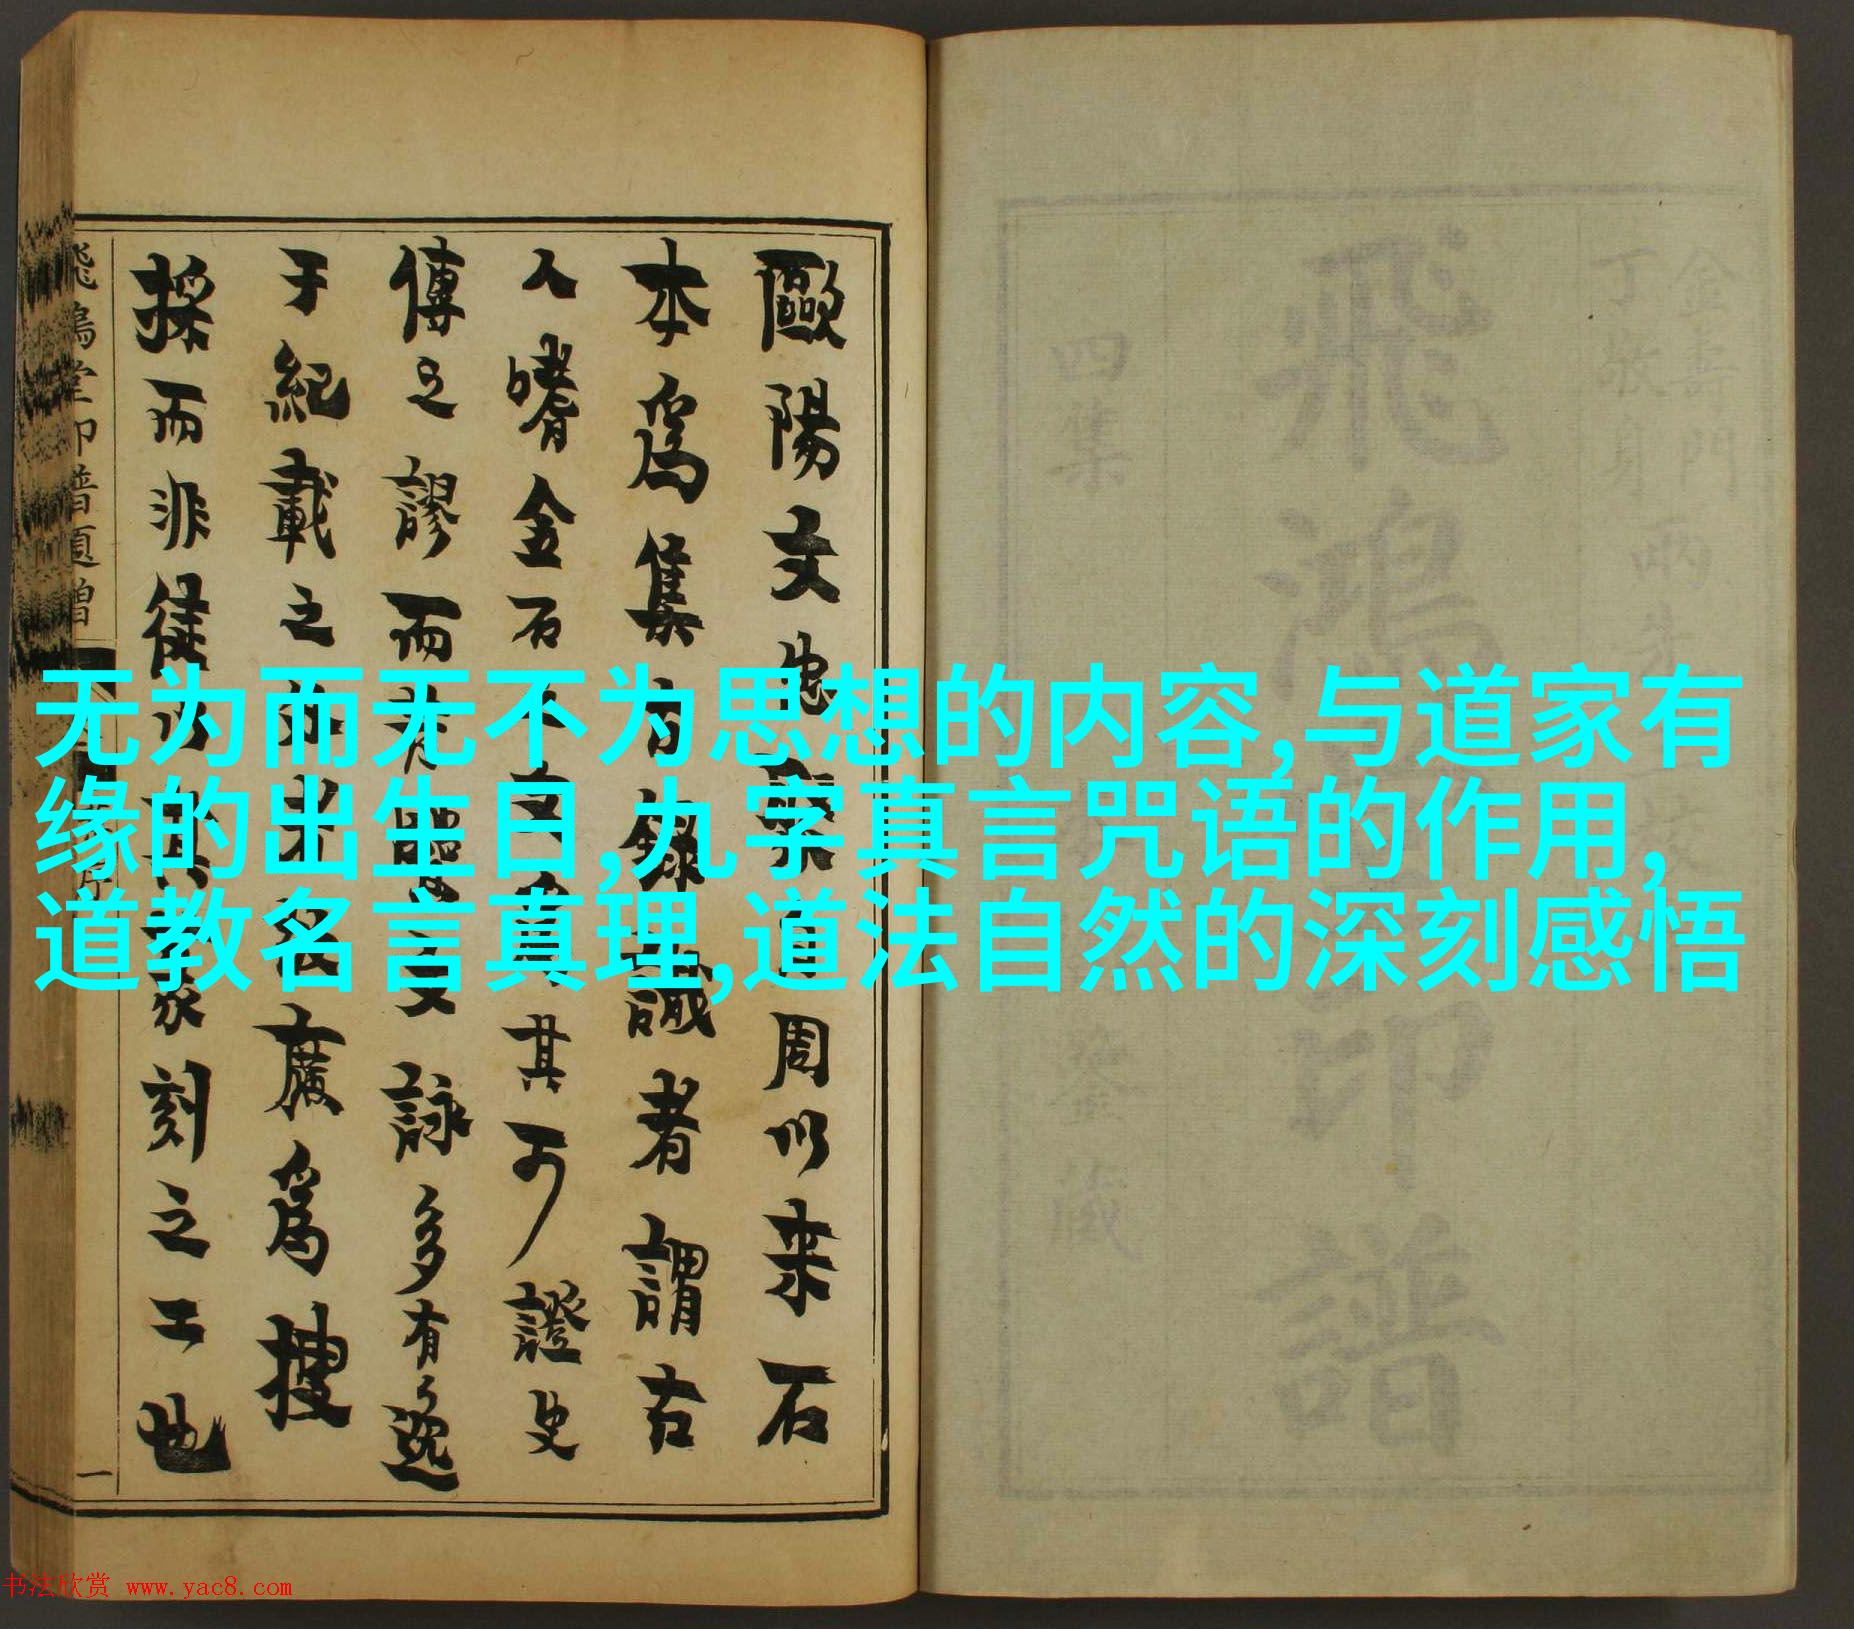 无为而无不为思想的内容,与道家有
缘的出生日,九字真言咒语的作用,
道教名言真理,道法自然的深刻感悟
金壽門
丁敬身
兩先生
飛鴻堂印譜
四集
藏
歐陽文忠裒自周以来石
本為集古錄識者謂古
人嗜金石之文為其可證史
傳之謬而 文詠多有逸
于紀載之外 廣為搜
採而非徒以其篆刻之工也
飛鴻堂印譜
一
书法欣赏 www.yac8.com